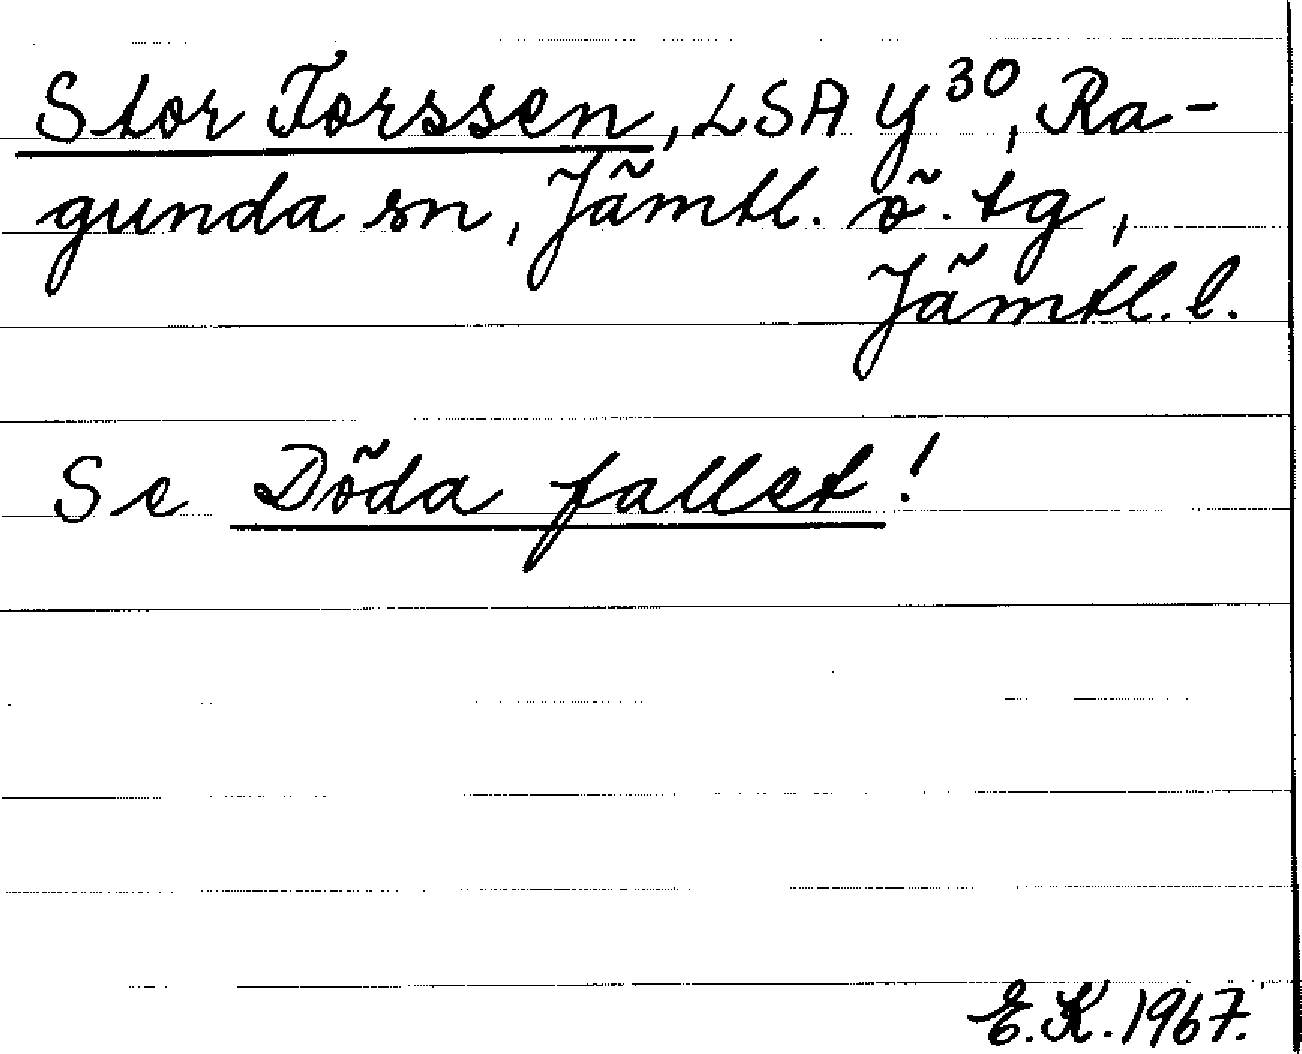 Stor Forssen, LSA Y³⁰, Ra-
gunda sn, Jämtl. ö. tg,
Jämtl. l.
Se Döda fallet!
E. K. 1967.